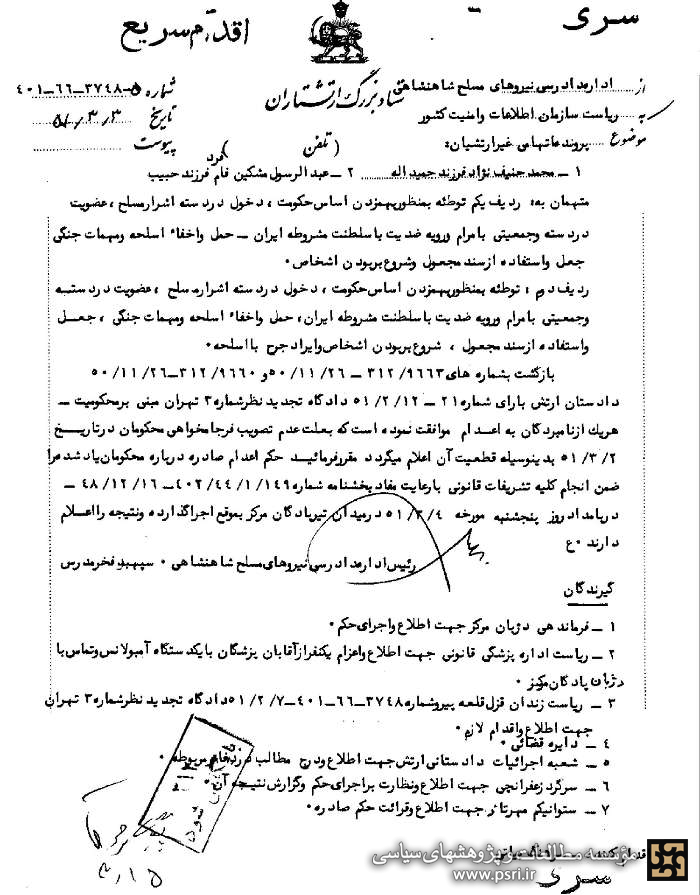 سری
اقدام سریع
از ادارهدادرسی نیروهای مسلح شاهنشاهی ستاد بزرگ ارتشتاران شماره ۵-۳۷۴۸-۶۶-۴۰۱
به ریاست سازمان اطلاعات وامنیت کشور تاریخ ۵۱/۳/۳
موضوع پرونده اتهامی غیرارتشیان: (تلفن ) پیوست
۱ – محمد حنیف نژاد فرزند حمیداله ۲ – عبدالرسول مشکین فام فرزند حبیب
متهمان به: ردیف یکم توطئه بمنظوربهمزدن اساس حکومت، دخول دردسته اشرارمسلح، عضویت
دردسته وجمعیتی بامرام ورویه ضدیت باسلطنت مشروطه ایران – حمل واخفاء اسلحه ومهمات جنگی
جعل واستفاده ازسند مجعول وشروع بربودن اشخاص۰
ردیف دوم: توطئه بمنظوربهمزدن اساس حکومت، دخول دردسته اشرارمسلح، عضویت دردسته
وجمعیتی بامرام ورویه ضدیت باسلطنت مشروطه ایران، حمل واخفاء اسلحه ومهمات جنگی، جعل
واستفاده ازسند مجعول، شروع بربودن اشخاص وایراد جرح بااسلحه۰
بازگشت بشماره های ۳۱۲/۹۶۶۳ – ۵۰/۱۱/۲۶ و ۳۱۲/۹۶۶۰ – ۵۰/۱۱/۲۶
دادستان ارتش بارای شماره ۲۱ – ۵۱/۲/۱۲ دادگاه تجدید نظرشماره ۳ تهران مبنی برمحکومیت –
هریک ازنامبردگان به اعدام موافقت نموده است که بعلت عدم تصویب فرجامخواهی محکومان درتاریخ
۵۱/۳/۲ بدینوسیله قطعیت آن اعلام میگردد مقررفرمائید حکم اعدام صادره درباره محکومان یادشده را
ضمن انجام کلیه تشریفات قانونی بارعایت مفاد بخشنامه شماره ۴۰۲/۴۴/۱/۱۴۹ – ۴۸/۱۲/۱۶ –
دربامداد روز پنجشنبه مورخه ۵۱/۳/۴ درمیدان تیرپادگان مرکز بموقع اجراگذارده ونتیجه رااعلام
دارند۰ع
رئیس ادارهدادرسی نیروهای مسلح شاهنشاهی ۰ سپهبد فخرمدرس
گیرندگان
۱ – فرماندهی دژبان مرکز جهت اطلاع واجرای حکم۰
۲ – ریاست اداره پزشگی قانونی جهت اطلاع واعزام یکنفرازآقایان پزشگان بایکدستگاه آمبولانس وتماس با
دژبان پادگان مرکز۰
۳ – ریاست زندان قزل قلعه پیروشماره ۳۷۴۸-۶۶-۴۰۱-۵۱/۲/۷ دادگاه تجدید نظرشماره ۳ تهران
جهت اطلاع واقدام لازم۰
۴ – دایره قضائی۰
۵ – شعبه اجرائیات دادستانی ارتش جهت اطلاع ودرج مطالب دردفاترمربوطه۰
۶ – سرگرد زعفرانچی جهت اطلاع ونظارت براجرای حکم وگزارش نتیجه آن۰
۷ – ستوانیکم مهرتاز جهت اطلاع وقرائت حکم صادره۰
مؤسسه مطالعات و پژوهشهای سیاسی
www.psri.ir
سری